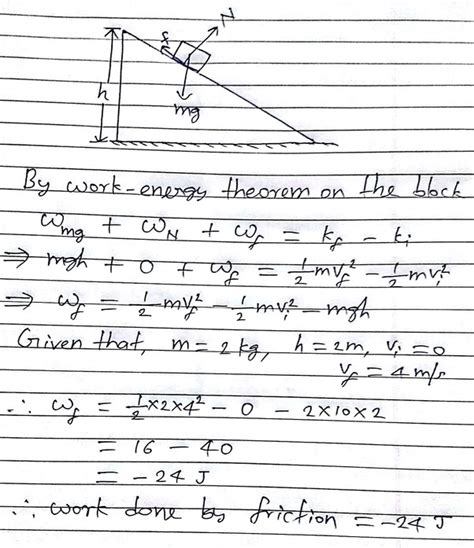 N
f
h
mg
By work-energy theorem on the block
W_mg + W_N + W_f = k_f - k_i
⇒ mgh + 0 + W_f = 1/2 mv_f² - 1/2 mv_i²
⇒ W_f = 1/2 mv_f² - 1/2 mv_i² - mgh
Given that, m = 2 kg, h = 2m, v_i = 0
v_f = 4 m/s
∴ W_f = 1/2 × 2 × 4² - 0 - 2×10×2
= 16 - 40
= - 24 J
∴ work done by friction = -24 J